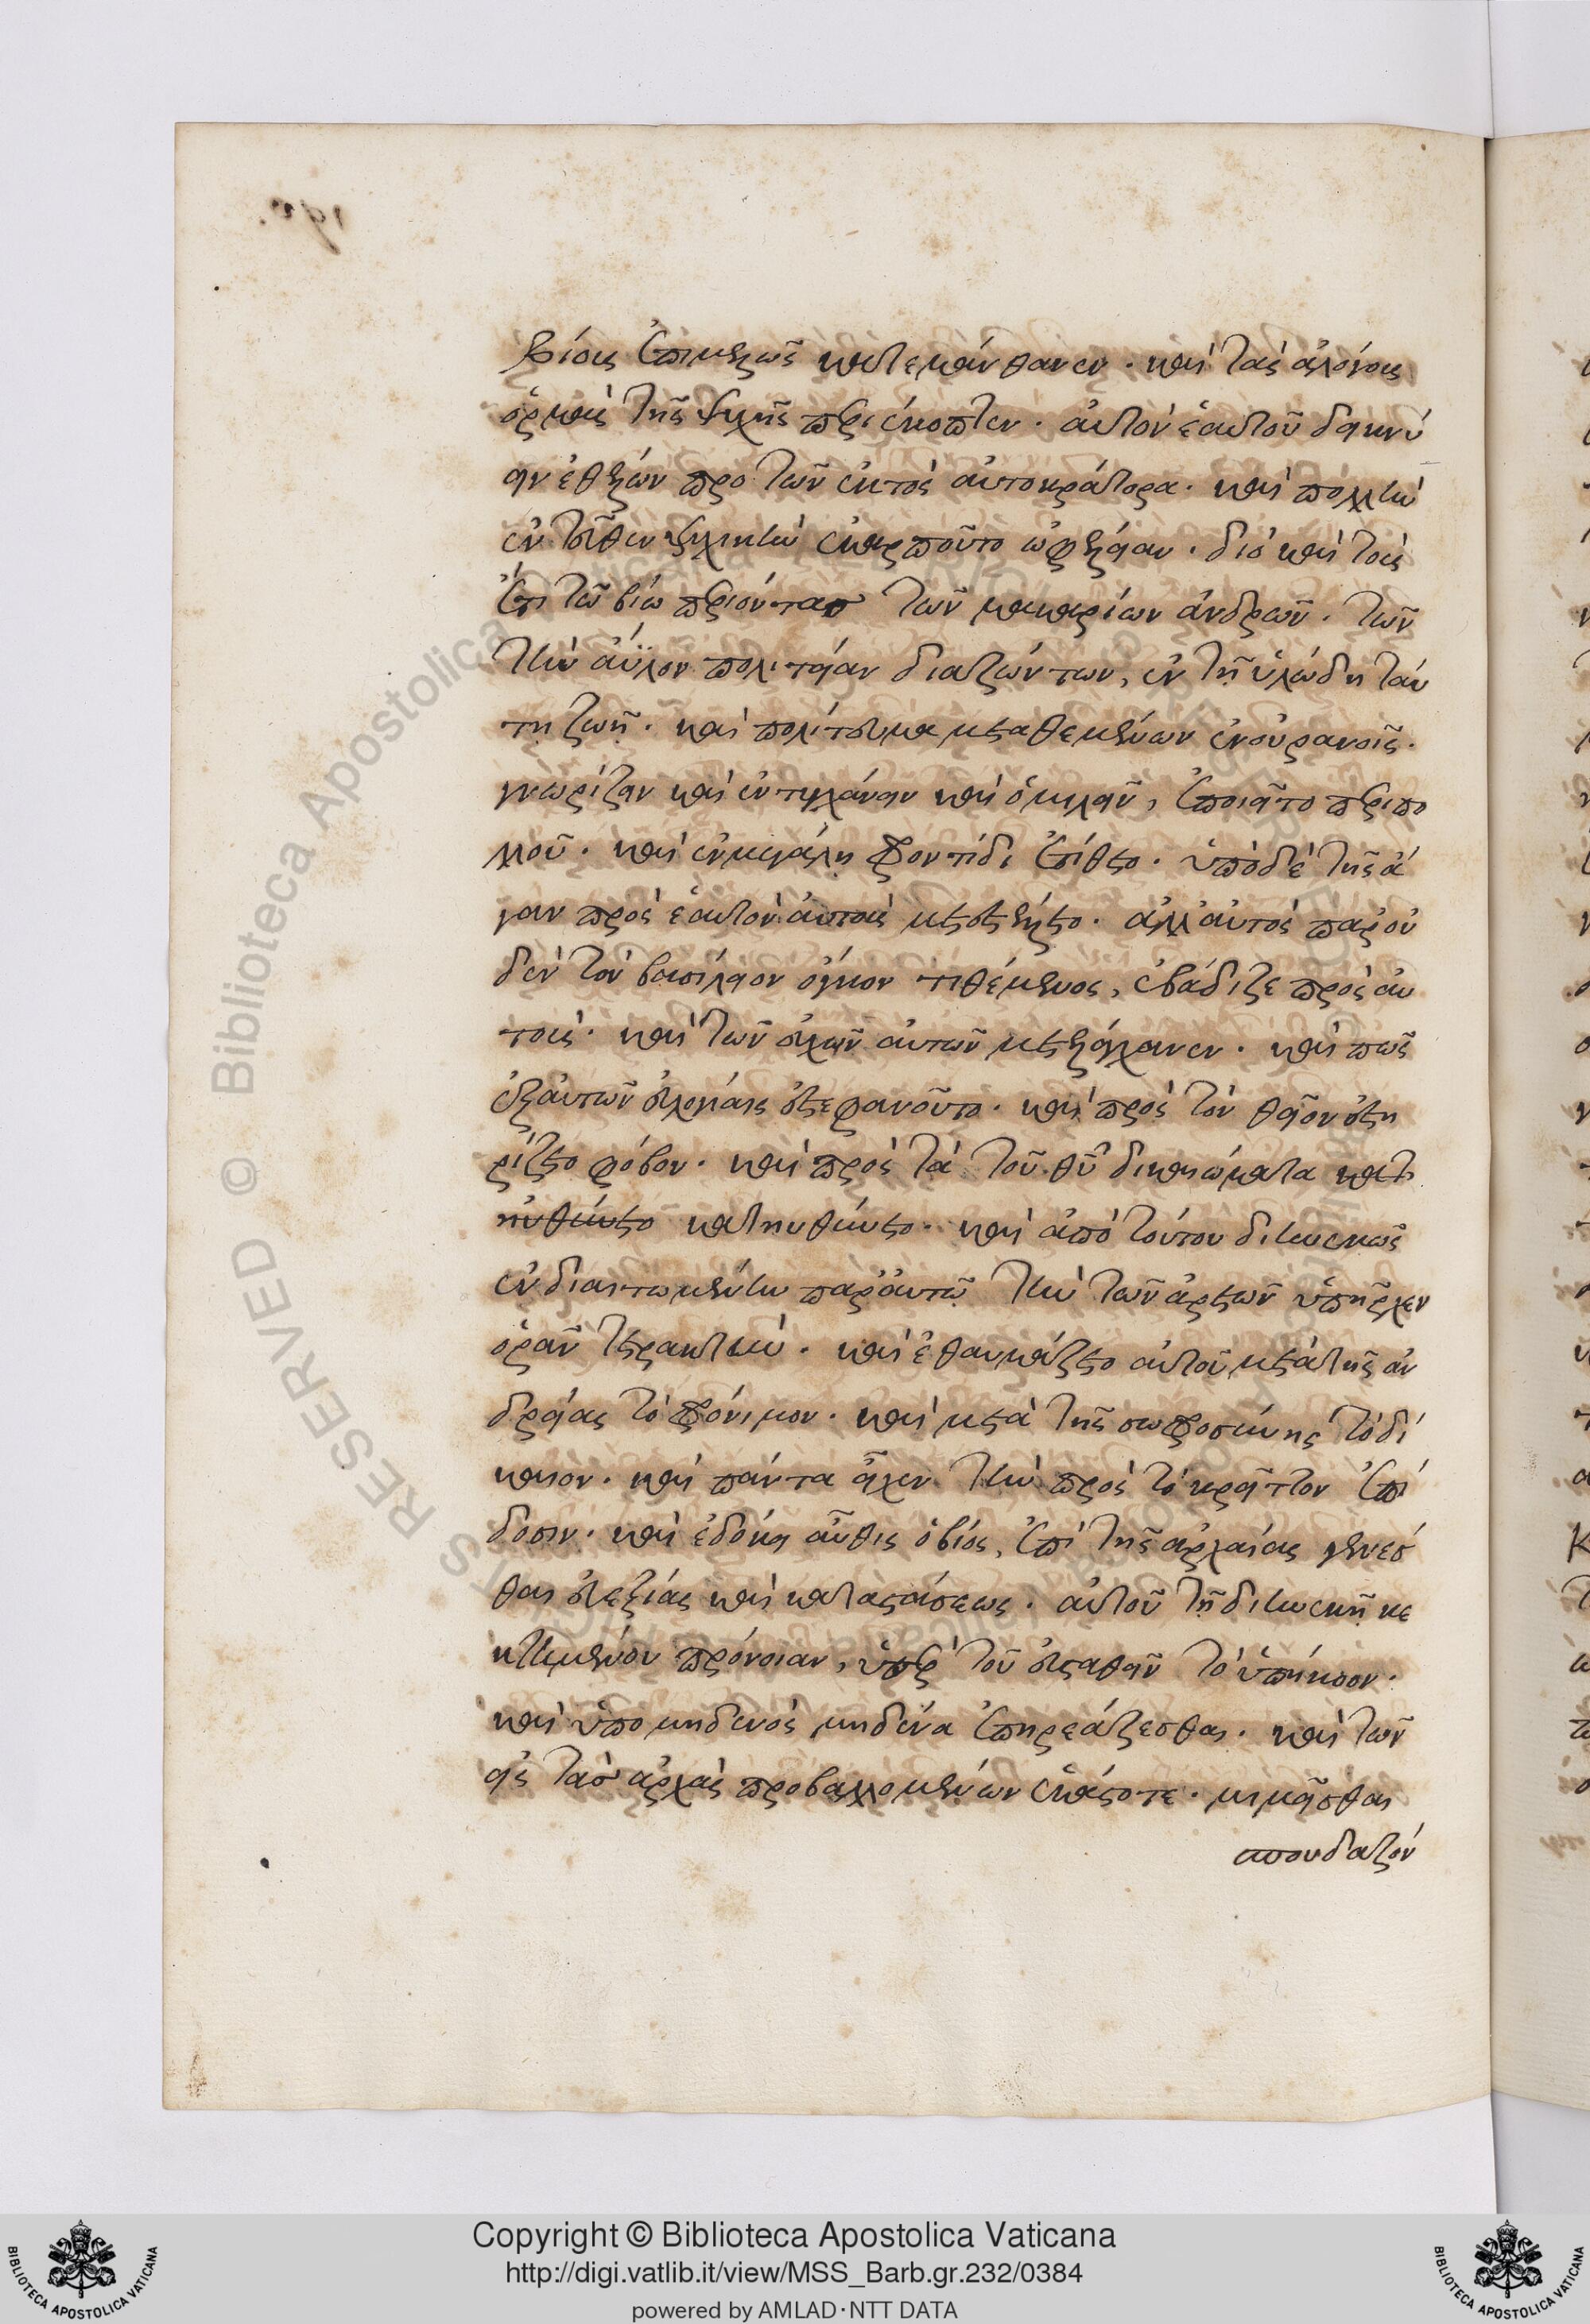 βίοις ἐπιμελῶς κατεμάνθανεν. καὶ τὰς ἀλόγους
ὁρμὰς τῆς ψυχῆς περιέκοπτεν. αὐτὸν ἑαυτοῦ δεικνύ
ειν ἐθέλων προ τῶν ἐκτὸς αὐτοκράτορα. καὶ πολλὴν
ἐντεῦθεν ψυχικὴν ἐκαρποῦτο ὠφέλειαν. διὸ καὶ τοὺς
ἔτι τῶ βίω περιόντας τῶν μακαρίων ἀνδρῶν. τῶν
τὴν ἄϋλον πολιτείαν διαζώντων, ἐν τῇ ὑλώδη ταύ
τῃ ζωῇ. καὶ πολίτευμα μεταθεμένων ἐν οὐρανοῖς.
γνωρίζειν καὶ ἐντυγχάνειν καὶ ὁμιλεῖν, ἐποιεῖτο περιπο
λλοῦ. καὶ ἐν μεγάλη φροντίδι ἐτίθετο. ὑπὸ δὲ τῆς ἄ
γαν πρὸς ἑαυτὸν αὐτοὺς μετεστέλλετο. ἀλλ' αὐτὸς παρ' οὐ
δὲν τὸν βασίλειον ὄγκον τιθέμενος, ἐβάδιζε πρὸς αὐ
τούς. καὶ τῶν εὐχῶν αὐτῶν μετελάγχανεν. καὶ πῶς
ἐξ αὐτῶν εὐλογίαις ἐστεφανοῦτο. καὶ πρὸς τὸν θεῖον ἐστη
ρίζετο φόβον. καὶ πρὸς τὰ τοῦ θῦ δικαιώματα κατ
ηυθύνετο κατηυθύνετο. καὶ ἀπὸ τούτου διηνεκῶς
ἐνδιαιτωμένην παρ' αὐτῷ τὴν τῶν ἀρετῶν ὑπῆρχεν
ὁρᾶν τετρακτύν. καὶ ἐθαυμάζετο αὐτοῦ μετὰ τῆς ἀν
δρείας τὸ φρόνιμον. καὶ μετὰ τῆς σωφροσύνης τὸ δί
καιον. καὶ πάντα εἶχεν τὴν πρὸς τὸ κρεῖττον ἐπί
δοσιν. καὶ ἐδόκει αὖθις ὁ βίος, ἐπὶ τῆς ἀρχαίας γενέσ
θαι εὐεξίας καὶ καταστάσεως. αὐτοῦ τῇ διηνεκῆ κε
κτημένου πρόνοιαν, ὑπὲρ τοῦ εὐσταθεῖν τὸ ὑπήκοον.
καὶ ὑπο μηδενὸς μηδένα ἐπηρεάζεσθαι. καὶ τῶν
εἰς τὰς ἀρχὰς προβαλλομένων ἑκάστοτε. μιμεῖσθαι
σπουδαζόν